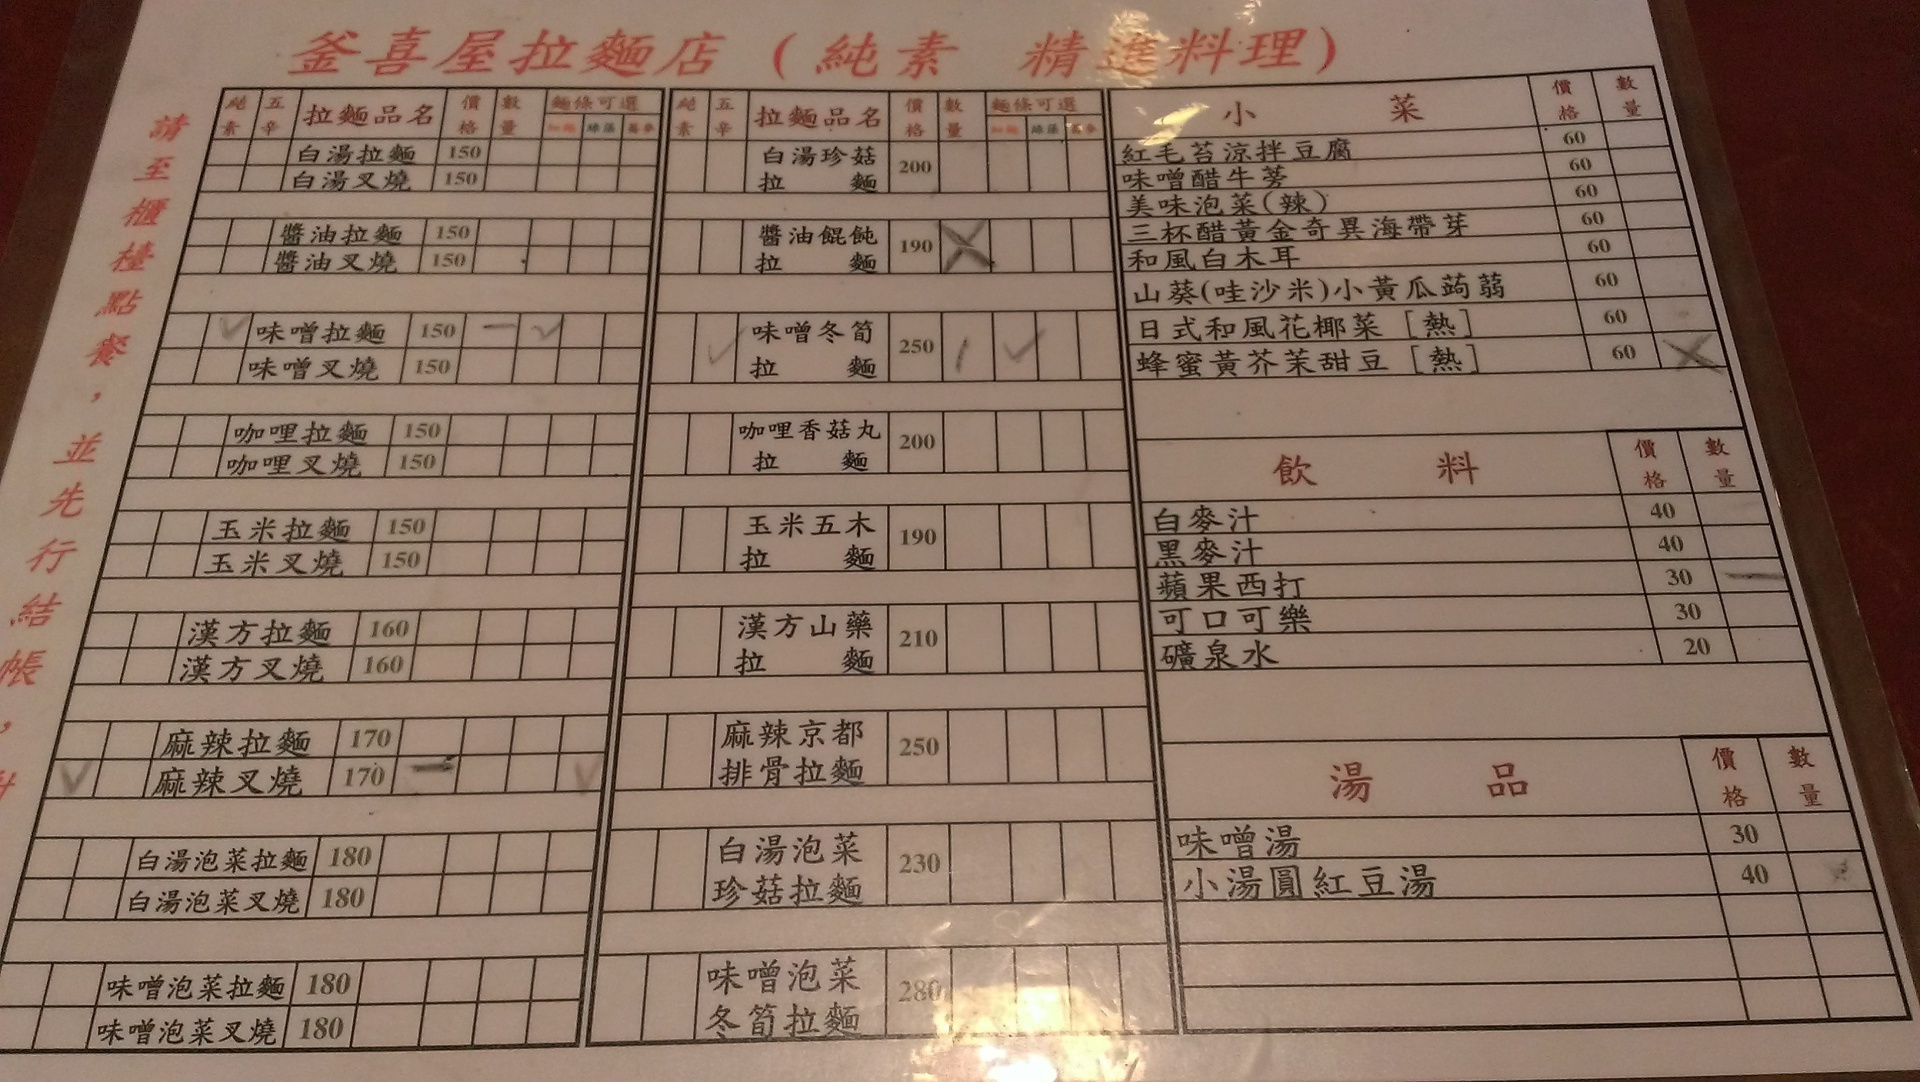 釜喜屋拉麵店(純素 精進料理)
請至櫃檯點餐,並先行結帳,
純素 五辛 拉麵品名 價格 數量 麵條可選
細麵 綠藻 蕎麥
白湯拉麵 150
白湯叉燒 150
醬油拉麵 150
醬油叉燒 150
味噌拉麵 150
味噌叉燒 150
咖哩拉麵 150
咖哩叉燒 150
玉米拉麵 150
玉米叉燒 150
漢方拉麵 160
漢方叉燒 160
麻辣拉麵 170
麻辣叉燒 170
白湯泡菜拉麵 180
白湯泡菜叉燒 180
味噌泡菜拉麵 180
味噌泡菜叉燒 180
純素 五辛 拉麵品名 價格 數量 麵條可選
細麵 綠藻 蕎麥
白湯珍菇
拉麵 200
醬油餛飩
拉麵 190
味噌冬筍
拉麵 250
咖哩香菇丸
拉麵 200
玉米五木
拉麵 190
漢方山藥
拉麵 210
麻辣京都
排骨拉麵 250
白湯泡菜
珍菇拉麵 230
味噌泡菜
冬筍拉麵 280
小菜 價格 數量
紅毛苔涼拌豆腐 60
味噌醋牛蒡 60
美味泡菜(辣) 60
三杯醋黃金奇異海帶芽 60
和風白木耳 60
山葵(哇沙米)小黃瓜蒟蒻 60
日式和風花椰菜[熱] 60
蜂蜜黃芥茉甜豆[熱] 60
飲料 價格 數量
白麥汁 40
黑麥汁 40
蘋果西打 30
可口可樂 30
礦泉水 20
湯品 價格 數量
味噌湯 30
小湯圓紅豆湯 40